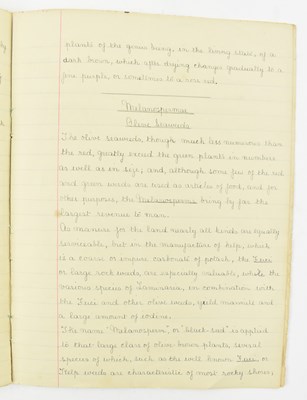 plants of the genus being, in the living state, of a
dark brown, which after drying changes gradually to a
fine purple, or sometimes to a rose red.
Melanospermeae
Olive Seaweeds
The olive seaweeds, though much less numerous than
the red, greatly exceed the green plants in numbers
as well as in size; and, although some few of the red
and green weeds are used as articles of food, and for
other purposes, the Melanosperms bring by far the
largest revenue to man.
As manures for the land nearly all kinds are equally
serviceable, but in the manufacture of kelp, which
is a coarse or impure carbonate of potash, the Fuci
or large rock weeds, are especially valuable, while the
various species of Laminaria, in combination with
the Fuci and other olive weeds, yield mannite and
a large amount of iodine.
The name "Melanosperm", or "black-seed" is applied
to that large class of olive brown plants, several
species of which, such as the well known Fuci, or
Kelp weeds are characteristic of most rocky shores,